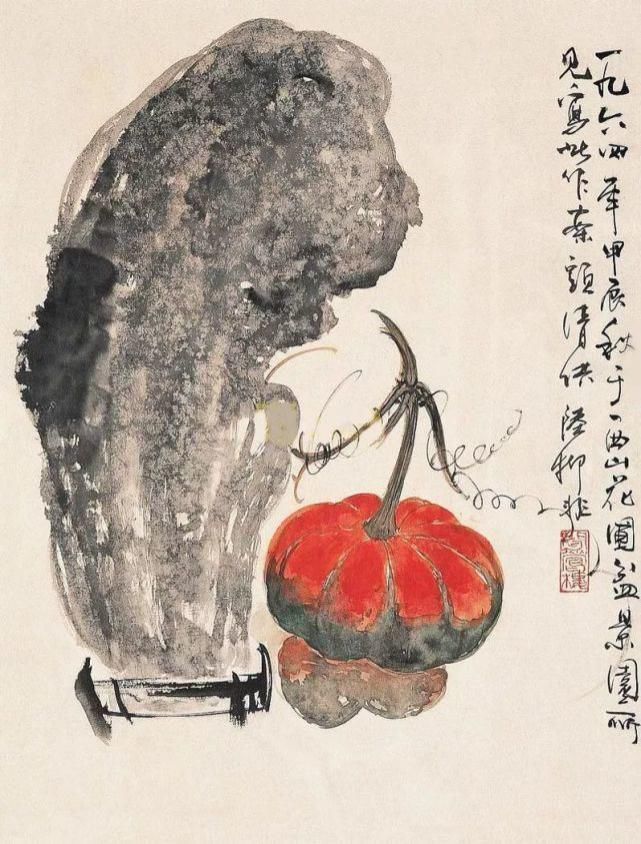 一九六四年甲辰秋于西山花圃盆景園所
見寫此作案頭清供 陸抑非